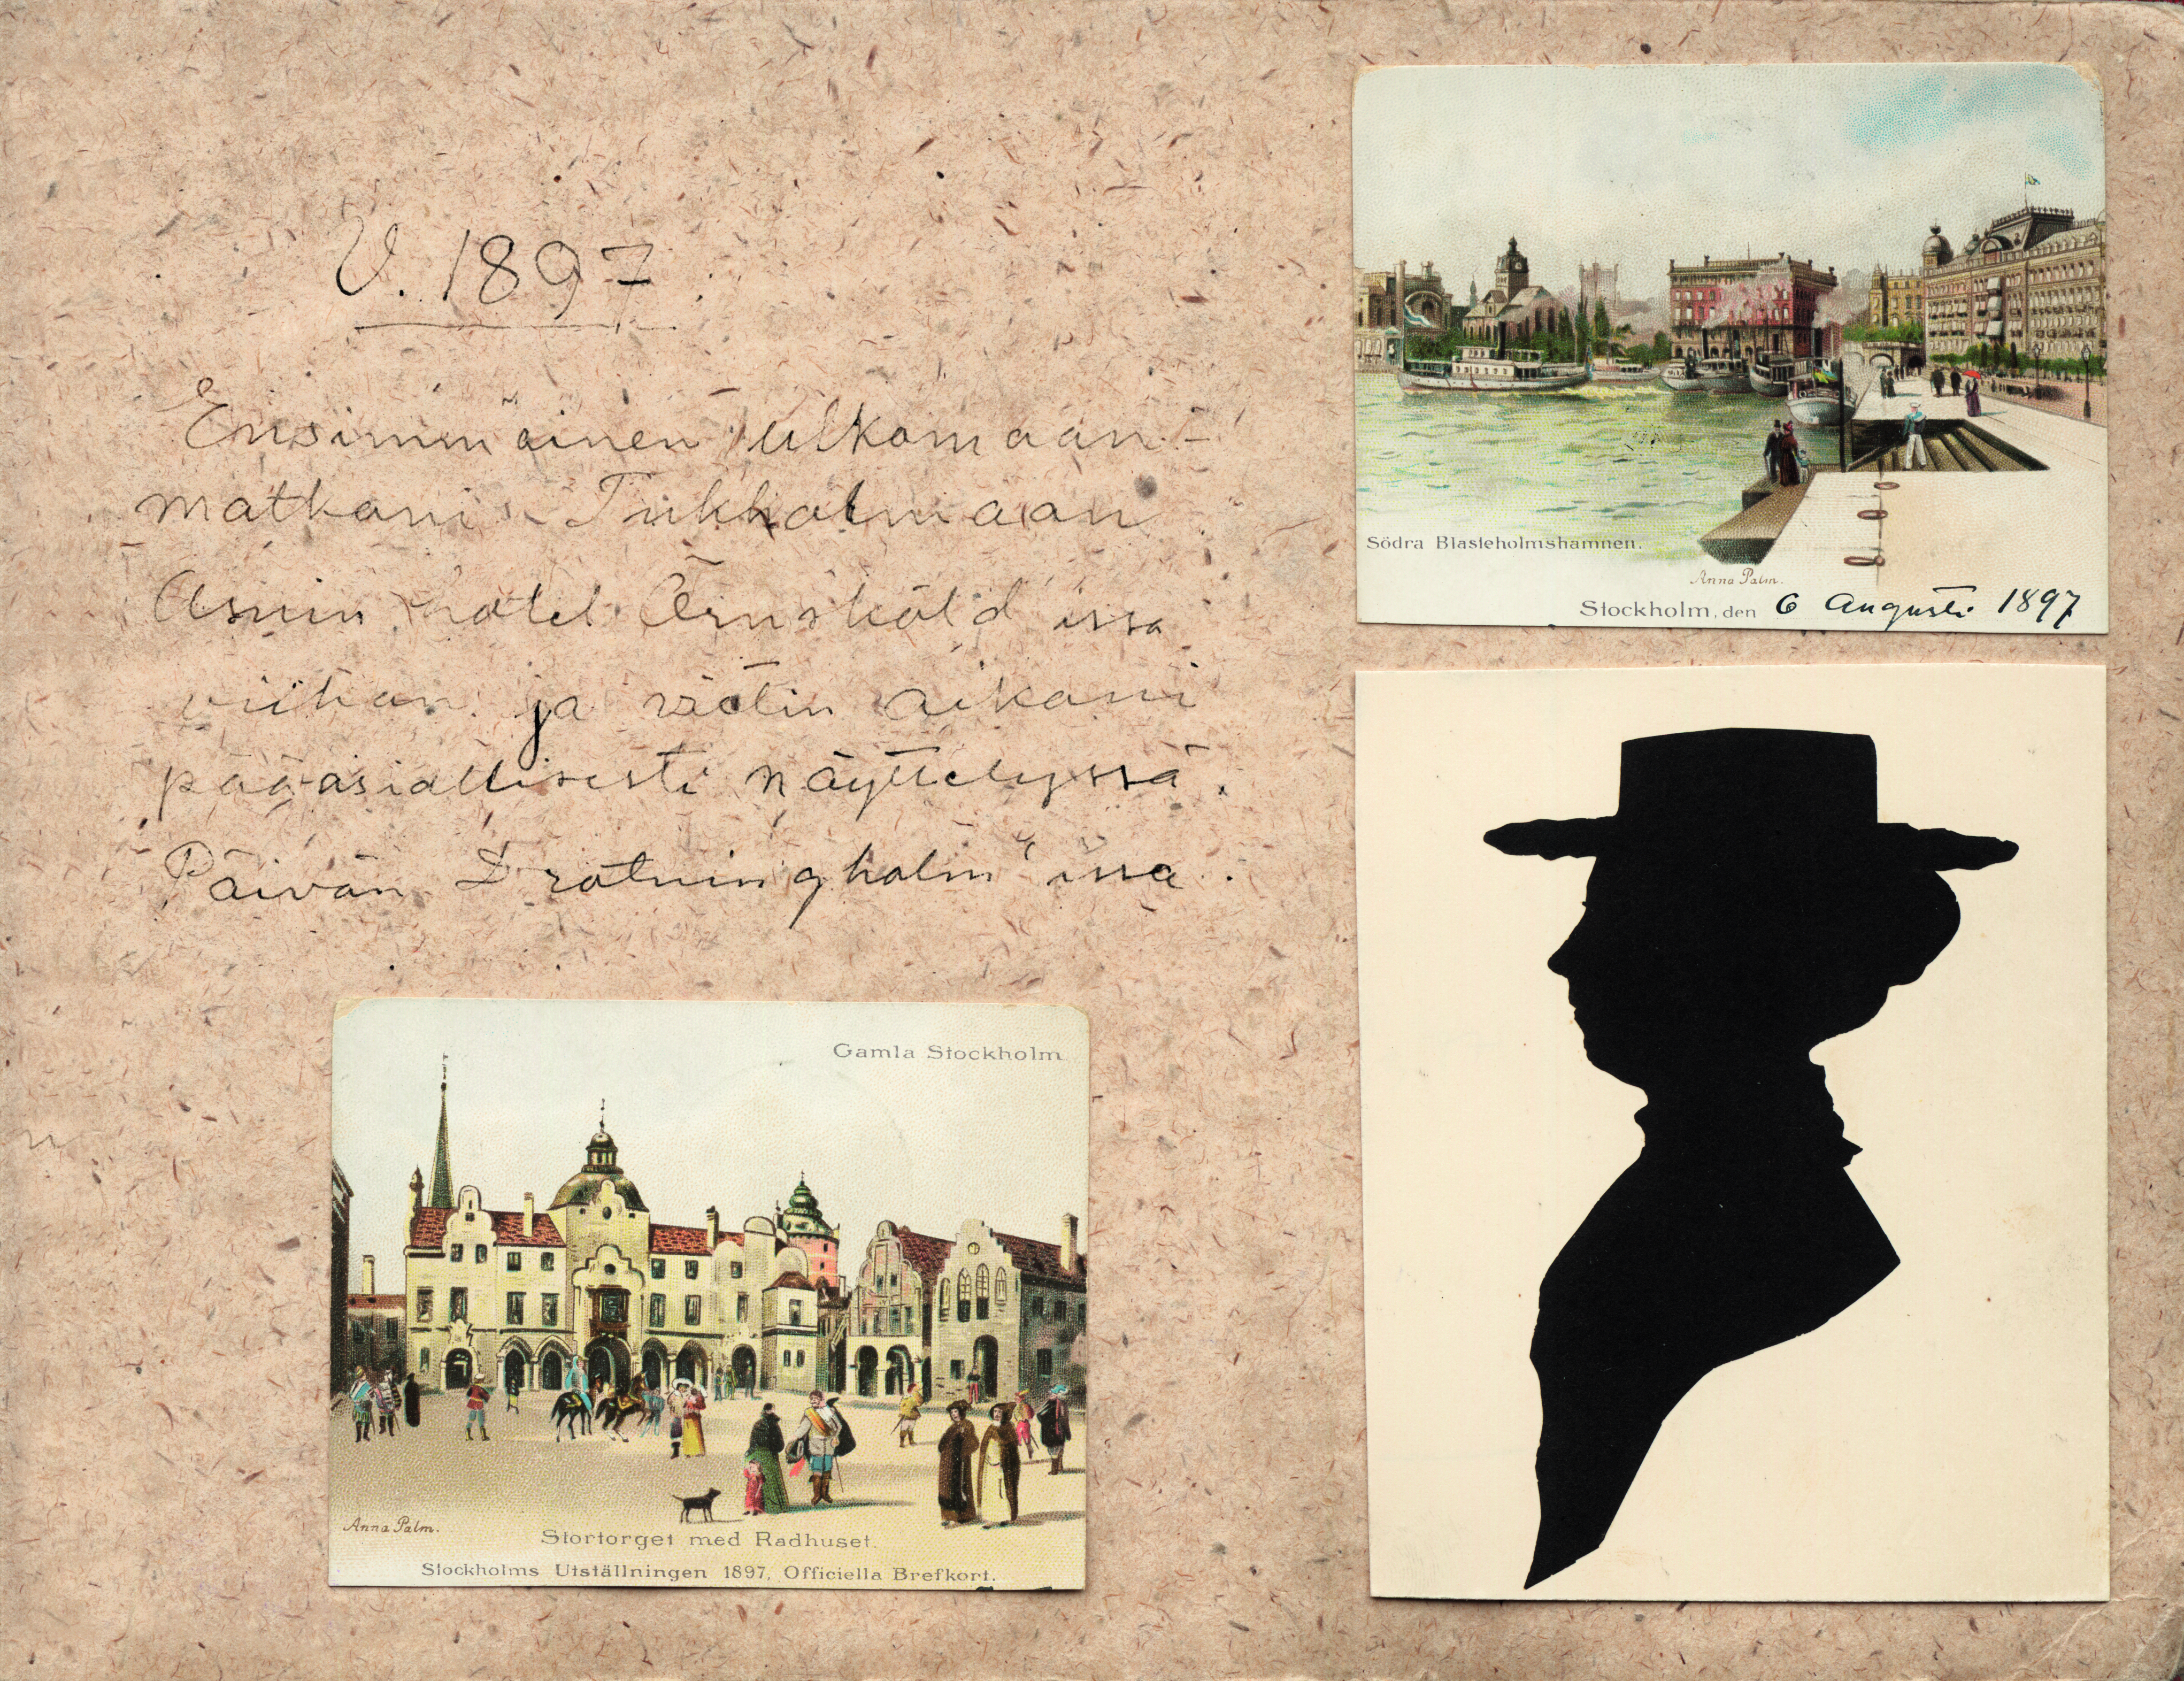 V. 1897.
Ensimmäinen ulkomaan-
matkani Tukholmaan
Asuin hotel Örnsköld'issa
viikon ja vietin aikani
pääasiallisesti näyttelyssä.
Päivän Drotningholm'issa.
Södra Blasieholmshamnen.
Anna Palm.
Stockholm, den 6 Augusti 1897
Gamla Stockholm
Anna Palm.
Stortorget med Radhuset.
Stockholms Utställningen 1897, Officiella Brefkort.